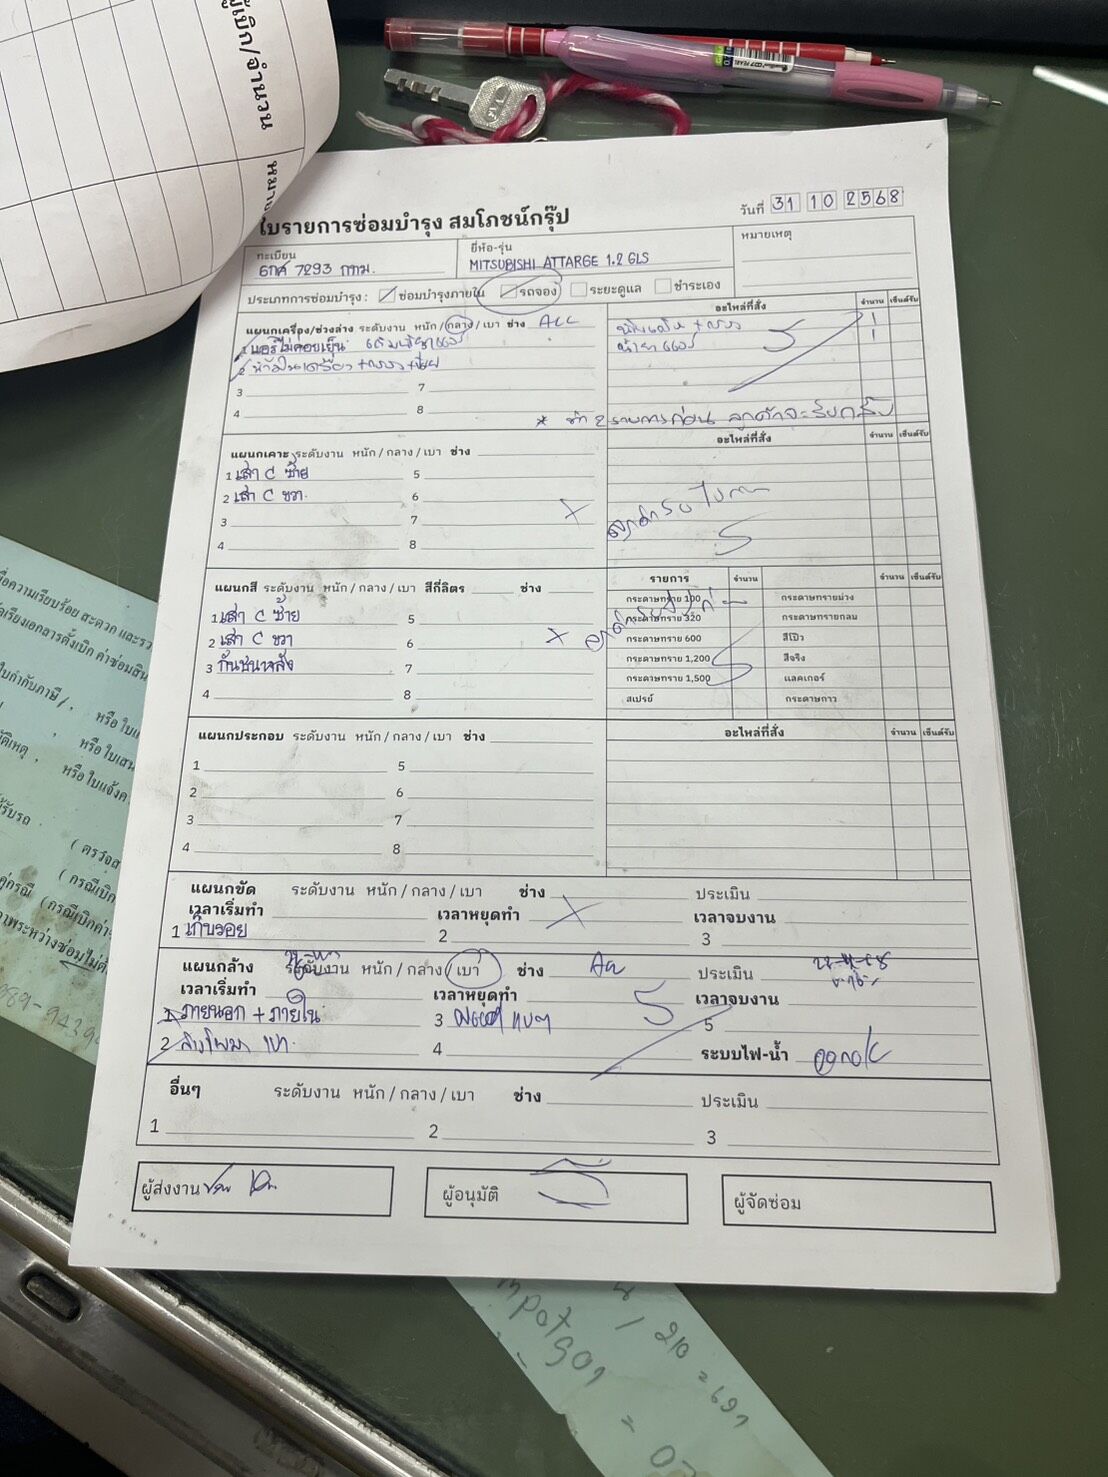 ผู้เบิก/จำนวน
ใบรายการซ่อมบำรุง สมโภชน์กรุ๊ป
วันที่ 31 10 2568
ทะเบียน
6กศ 7293 กทม.
ยี่ห้อ-รุ่น
MITSUBISHI ATTARGE 1.2 GLS
หมายเหตุ
ประเภทการซ่อมบำรุง : ซ่อมบำรุงภายใน รถจอง ระยะดูแล ชำระเอง
แผนกเครื่อง/ช่วงล่าง ระดับงาน หนัก / กลาง / เบา ช่าง
อะไหล่ที่สั่ง จำนวน เซ็นต์รับ
1 แอร์ไม่ค่อยเย็น เติมน้ำยาแอร์
น้ำยาแอร์ 1
2 น้ำมันเครื่อง + กรอง
3 7
4 8
* ทำ 2 รายการก่อน ลูกค้าจะรีบกลับ
แผนกเคาะ ระดับงาน หนัก / กลาง / เบา ช่าง
อะไหล่ที่สั่ง จำนวน เซ็นต์รับ
1 เสา C ซ้าย 5
2 เสา C ขวา 6
3 7
4 8
แผนกสี ระดับงาน หนัก / กลาง / เบา สีกี่ลิตร ช่าง
รายการ จำนวน จำนวน เซ็นต์รับ
1 เสา C ซ้าย 5
2 เสา C ขวา 6
3 กันชนหลัง 7
4 8
กระดาษทราย 100 กระดาษทรายม่วง
กระดาษทราย 320 กระดาษทรายกลม
กระดาษทราย 600 สีโป๊ว
กระดาษทราย 1,200 สีจริง
กระดาษทราย 1,500 แลคเกอร์
สเปรย์ กระดาษกาว
แผนกประกอบ ระดับงาน หนัก / กลาง / เบา ช่าง
อะไหล่ที่สั่ง จำนวน เซ็นต์รับ
1 5
2 6
3 7
4 8
แผนกขัด ระดับงาน หนัก / กลาง / เบา ช่าง ประเมิน
เวลาเริ่มทำ เวลาหยุดทำ เวลาจบงาน
1 เก็บรอย 2 3
แผนกล้าง ระดับงาน หนัก / กลาง / เบา ช่าง ประเมิน
เวลาเริ่มทำ เวลาหยุดทำ เวลาจบงาน
1 ภายนอก + ภายใน 3 5
2 4 ระบบไฟ-น้ำ
อื่นๆ ระดับงาน หนัก / กลาง / เบา ช่าง ประเมิน
1 2 3
ผู้ส่งงาน
ผู้อนุมัติ
ผู้จัดซ่อม
/ 210 = 691